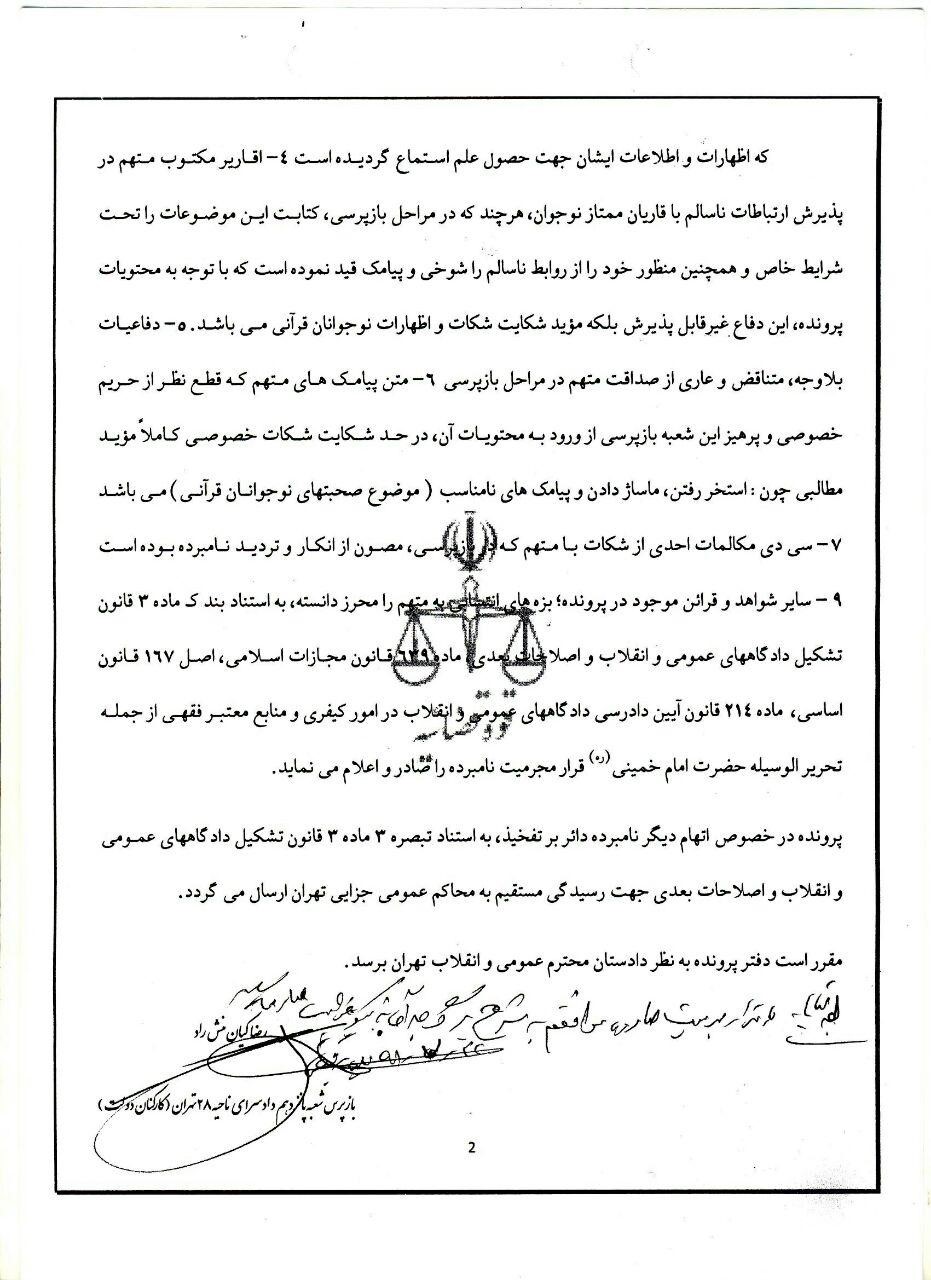 که اظهارات و اطلاعات ایشان جهت حصول علم استماع گردیده است ٤- اقاریر مکتوب متهم در
پذیرش ارتباطات ناسالم با قاریان ممتاز نوجوان، هرچند که در مراحل بازپرسی، کتابت این موضوعات را تحت
شرایط خاص و همچنین منظور خود را از روابط ناسالم را شوخی و پیامک قید نموده است که با توجه به محتویات
پرونده، این دفاع غیرقابل پذیرش بلکه مؤید شکایت شکات و اظهارات نوجوانان قرآنی می باشد. ٥- دفاعیات
بلاوجه، متناقض و عاری از صداقت متهم در مراحل بازپرسی ٦- متن پیامک های متهم که قطع نظر از حریم
خصوصی و پرهیز این شعبه بازپرسی از ورود به محتویات آن، در حد شکایت شکات خصوصی کاملاً مؤید
مطالبی چون : استخر رفتن، ماساژ دادن و پیامک های نامناسب ( موضوع صحبتهای نوجوانان قرآنی ) می باشد
٧- سی دی مکالمات احدی از شکات با متهم که در بازپرسی، مصون از انکار و تردید نامبرده بوده است
٩- سایر شواهد و قرائن موجود در پرونده؛ بزه های انتسابی به متهم را محرز دانسته، به استناد بند ک ماده ٣ قانون
تشکیل دادگاههای عمومی و انقلاب و اصلاحات بعدی، ماده ٦٣٩ قانون مجازات اسلامی، اصل ١٦٧ قانون
اساسی، ماده ٢١٤ قانون آیین دادرسی دادگاههای عمومی و انقلاب در امور کیفری و منابع معتبر فقهی از جمله
تحریر الوسیله حضرت امام خمینی (ره) قرار مجرمیت نامبرده را صادر و اعلام می نماید.
قوه قضائیه
پرونده در خصوص اتهام دیگر نامبرده دائر بر تفخیذ، به استناد تبصره ٣ ماده ٣ قانون تشکیل دادگاههای عمومی
و انقلاب و اصلاحات بعدی جهت رسیدگی مستقیم به محاکم عمومی جزایی تهران ارسال می گردد.
مقرر است دفتر پرونده به نظر دادستان محترم عمومی و انقلاب تهران برسد.
با قرار مجرمیت صادره موافقم به شرح
رضا کیان منش راد
بازپرس شعبه پانزدهم دادسرای ناحیه ٢٨ تهران (کارکنان دولت)
2